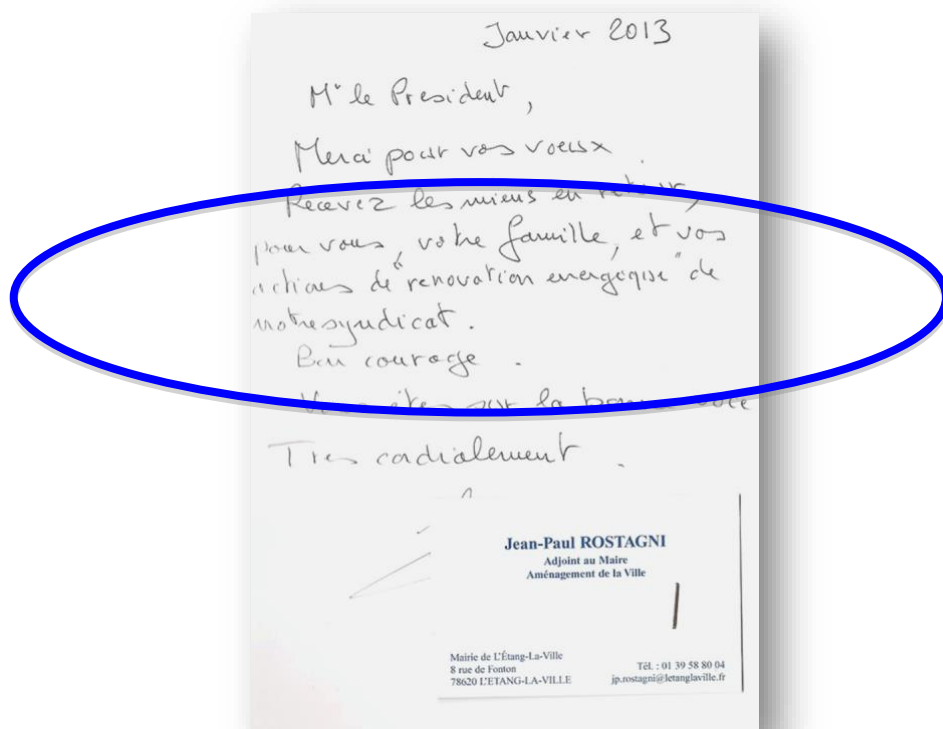 Janvier 2013
Mr le President,
Merci pour vos voeux.
Recevez les miens en retour,
pour vous, votre famille, et vos
actions de "renovation energeqise" de
notre syndicat.
Bon courage.
Vous êtes sur la bonne voie
Tres cordialement.
Jean-Paul ROSTAGNI
Adjoint au Maire
Aménagement de la Ville
Mairie de L'Étang-La-Ville
8 rue de Fonton
78620 L'ETANG-LA-VILLE
Tél. : 01 39 58 80 04
jp.rostagni@letanglaville.fr